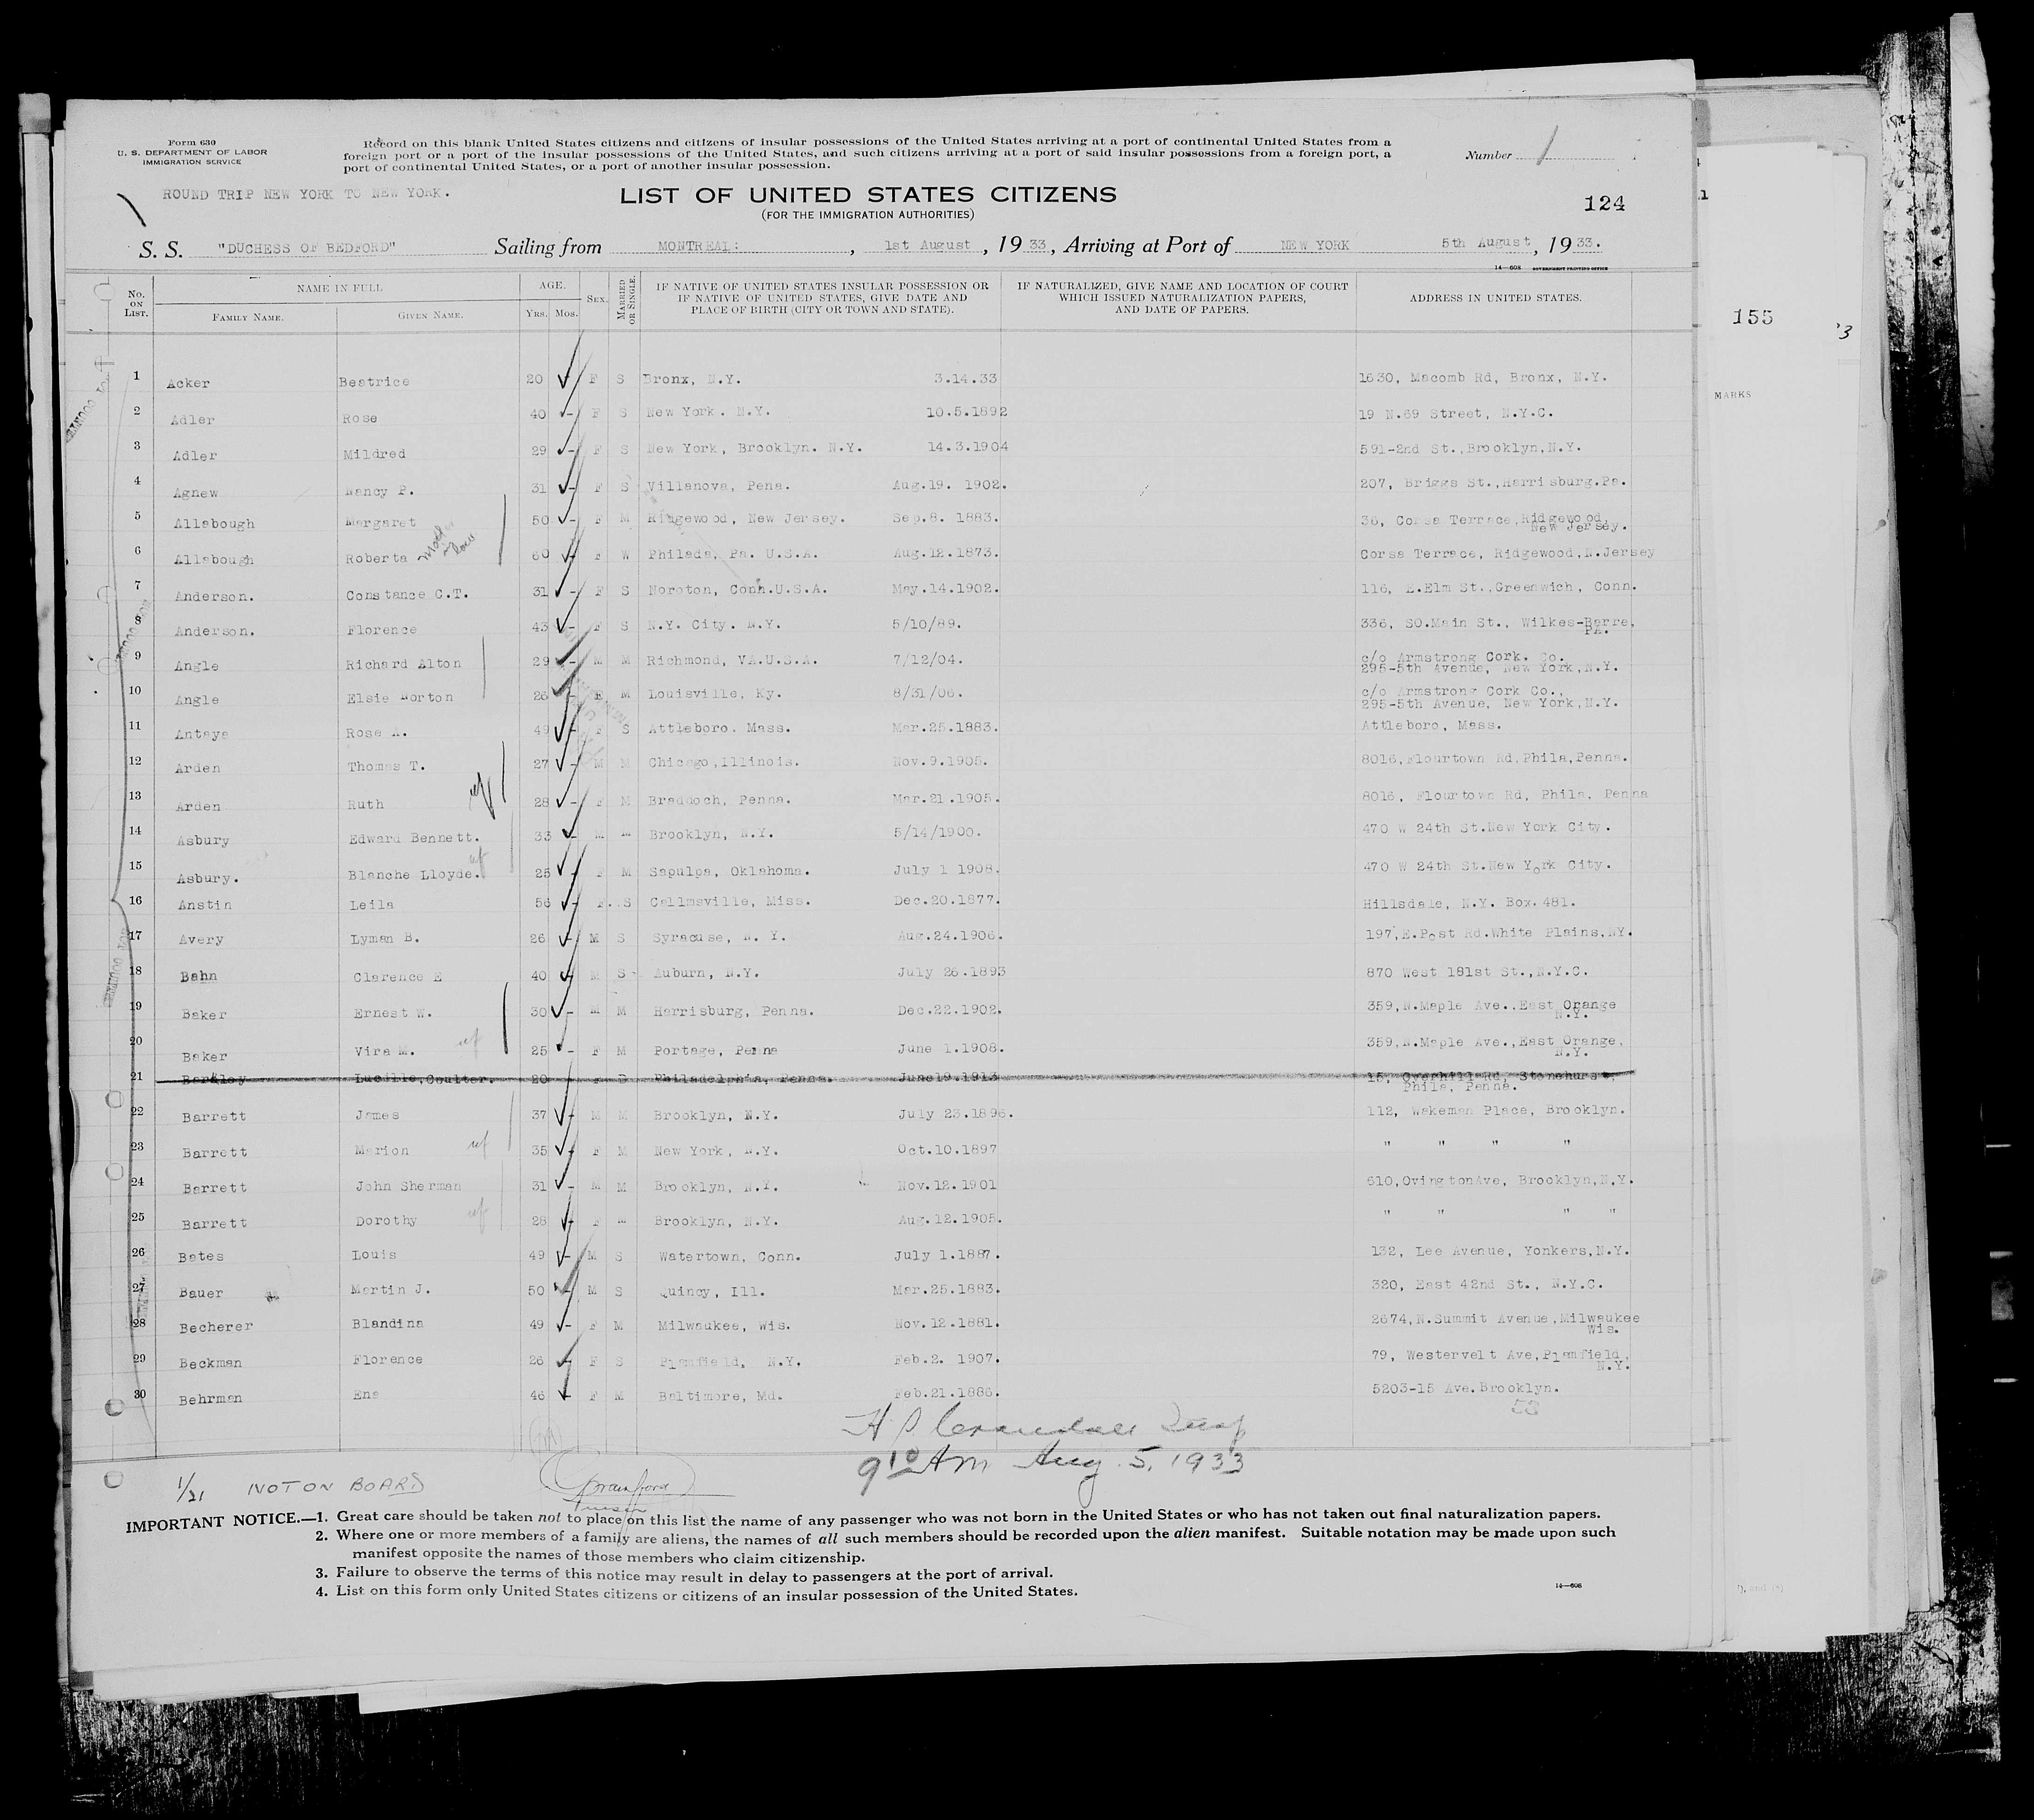 Form 630
U. S. DEPARTMENT OF LABOR
IMMIGRATION SERVICE
Record on this blank United States citizens and citizens of insular possessions of the United States arriving at a port of continental United States from a
foreign port or a port of the insular possessions of the United States, and such citizens arriving at a port of said insular possessions from a foreign port, a
port of continental United States, or a port of another insular possession.
Number 1
ROUND TRIP NEW YORK TO NEW YORK.
LIST OF UNITED STATES CITIZENS
(FOR THE IMMIGRATION AUTHORITIES)
124
S. S. "DUCHESS OF BEDFORD" Sailing from MONTREAL: , 1st August , 19 33 , Arriving at Port of NEW YORK 5th August , 19 33.
14—608 GOVERNMENT PRINTING OFFICE
No. ON LIST. NAME IN FULL FAMILY NAME. GIVEN NAME. AGE. Yrs. Mos. SEX. MARRIED OR SINGLE. IF NATIVE OF UNITED STATES INSULAR POSSESSION OR IF NATIVE OF UNITED STATES, GIVE DATE AND PLACE OF BIRTH (CITY OR TOWN AND STATE). IF NATURALIZED, GIVE NAME AND LOCATION OF COURT WHICH ISSUED NATURALIZATION PAPERS, AND DATE OF PAPERS. ADDRESS IN UNITED STATES.
155
MARKS
1 Acker Beatrice 20 F S Bronx, N.Y. 3.14.33 1630, Macomb Rd, Bronx, N.Y.
2 Adler Rose 40 F S New York. N.Y. 10.5.1892 19 N.69 Street, N.Y.C.
3 Adler Mildred 29 F S New York, Brooklyn. N.Y. 14.3.1904 591-2nd St.,Brooklyn,N.Y.
4 Agnew Nancy P. 31 F S Villanova, Pena. Aug.19. 1902. 207, Briggs St.,Harrisburg.Pa.
5 Allabough Margaret 50 F M Ridgewood, New Jersey. Sep.8. 1883. 36, Corsa Terrace,Ridgewood, New Jersey.
6 Allabough Roberta 60 F W Philada, Pa. U.S.A. Aug.12.1873. Corsa Terrace, Ridgewood,N.Jersey
7 Anderson. Constance C.T. 31 F S Noroton, Conn.U.S.A. May.14.1902. 116, E.Elm St.,Greenwich, Conn.
8 Anderson. Florence 43 F S N.Y. City. N.Y. 5/10/89. 336, SO.Main St., Wilkes-Barre, PA.
9 Angle Richard Alton 29 M M Richmond, VA.U.S.A. 7/12/04. c/o Armstrong Cork. Co. 295-5th Avenue, New York,N.Y.
10 Angle Elsie Horton 26 F M Louisville, Ky. 8/31/06. c/o Armstrong Cork Co., 295-5th Avenue, New York,N.Y.
11 Antaya Rose A. 49 F S Attleboro. Mass. Mar.25.1883. Attleboro, Mass.
12 Arden Thomas T. 27 M M Chicago,Illinois. Nov.9.1905. 8016,Flourtown Rd,Phila,Penna.
13 Arden Ruth wf 28 F M Braddoch, Penna. Mar.21.1905. 8016, Flourtown Rd, Phila, Penna
14 Asbury Edward Bennett. 33 M M Brooklyn, N.Y. 5/14/1900. 470 W 24th St.New York City.
15 Asbury. Blanche Lloyde. wf 25 F M Sapulpa, Oklahoma. July 1 1908. 470 W 24th St.New York City.
16 Anstin Leila 56 F. S Callmsville, Miss. Dec.20.1877. Hillsdale, N.Y. Box.481.
17 Avery Lyman B. 26 M S Syracuse, N. Y. Aug.24.1906. 197,E.Post Rd.White Plains,NY.
18 Bahn Clarence E 40 M S Auburn, N.Y. July 26.1893 870 West 181st St.,N.Y.C.
19 Baker Ernest W. 30 M M Harrisburg, Penna. Dec.22.1902. 359,N.Maple Ave.,East Orange N.Y.
20 Baker Vira M. wf 25 F M Portage, Penna June 1.1908. 359,N.Maple Ave.,East Orange, N.Y.
21 Lucille,Coulter. 20 F Philadelphia, Penna. June19.1913 15, Overhill Rd, Stonehurst, Phila, Penna.
22 Barrett James 37 M M Brooklyn, N.Y. July 23.1896. 112, Wakeman Place, Brooklyn.
23 Barrett Marion wf 35 F M New York, N.Y. Oct.10.1897 " " " "
24 Barrett John Sherman 31 M M Brooklyn, N.Y. Nov.12.1901 610,OvingtonAve, Brooklyn,N.Y.
25 Barrett Dorothy wf 28 F M Brooklyn, N.Y. Aug.12.1905. " " " "
26 Bates Louis 49 M S Watertown, Conn. July 1.1887. 132, Lee Avenue, Yonkers,N.Y.
27 Bauer Martin J. 50 M S Quincy, Ill. Mar.25.1883. 320, East 42nd St., N.Y.C.
28 Becherer Blandina 49 F M Milwaukee, Wis. Nov.12.1881. 2674,N.Summit Avenue,Milwaukee Wis.
29 Beckman Florence 26 F S Plamfield, N.Y. Feb.2. 1907. 79, Westervelt Ave,Plamfield, N.Y.
30 Behrman Ena 46 F M Baltimore, Md. Feb.21.1886. 5203-15 Ave.Brooklyn.
53
9 10 AM Aug. 5, 1933
1/21 NOT ON BOARD
IMPORTANT NOTICE.—1. Great care should be taken not to place on this list the name of any passenger who was not born in the United States or who has not taken out final naturalization papers.
2. Where one or more members of a family are aliens, the names of all such members should be recorded upon the alien manifest. Suitable notation may be made upon such
manifest opposite the names of those members who claim citizenship.
3. Failure to observe the terms of this notice may result in delay to passengers at the port of arrival.
4. List on this form only United States citizens or citizens of an insular possession of the United States.
14—608